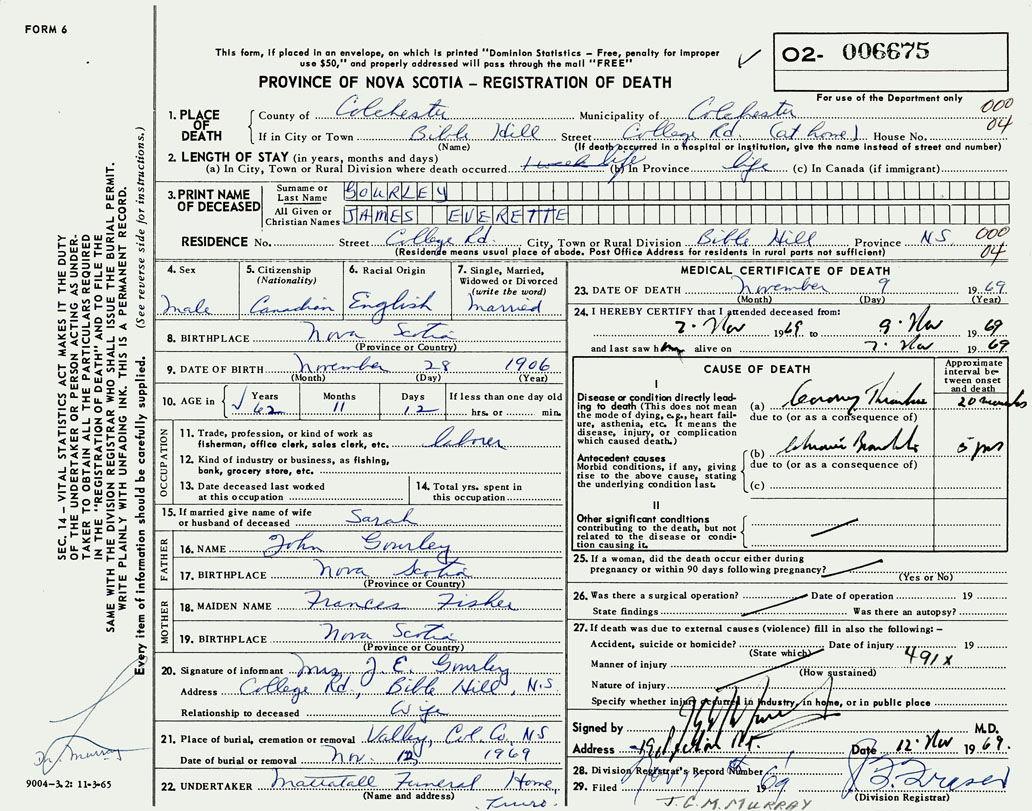 FORM 6
This form, if placed in an envelope, on which is printed "Dominion Statistics – Free, penalty for improper
use $50," and properly addressed will pass through the mail "FREE"
O2- 006675
PROVINCE OF NOVA SCOTIA – REGISTRATION OF DEATH
For use of the Department only
1. PLACE OF DEATH
County of Colchester Municipality of Colchester 000
If in City or Town Bible Hill Street College Rd (at home) House No. 04
(Name) (If death occurred in a hospital or institution, give the name instead of street and number)
2. LENGTH OF STAY (in years, months and days)
(a) In City, Town or Rural Division where death occurred 1 week life (b) In Province life (c) In Canada (if immigrant)
3. PRINT NAME OF DECEASED
Surname or Last Name GOURLEY
All Given or Christian Names JAMES EVERETTE
RESIDENCE No. Street College Rd. City, Town or Rural Division Bible Hill Province NS 000
(Residence means usual place of abode. Post Office Address for residents in rural parts not sufficient) 04
4. Sex Male
5. Citizenship (Nationality) Canadian
6. Racial Origin English
7. Single, Married, Widowed or Divorced (write the word) Married
8. BIRTHPLACE Nova Scotia
(Province or Country)
9. DATE OF BIRTH November 28 1906
(Month) (Day) (Year)
10. AGE in Years 62 Months 11 Days 12 If less than one day old hrs. or min.
OCCUPATION
11. Trade, profession, or kind of work as fisherman, office clerk, sales clerk, etc. laborer
12. Kind of industry or business, as fishing, bank, grocery store, etc.
13. Date deceased last worked at this occupation
14. Total yrs. spent in this occupation
15. If married give name of wife or husband of deceased Sarah
FATHER
16. NAME John Gourley
17. BIRTHPLACE Nova Scotia
(Province or Country)
MOTHER
18. MAIDEN NAME Frances Fisher
19. BIRTHPLACE Nova Scotia
(Province or Country)
20. Signature of informant Mrs J. E. Gourley
Address College Rd, Bible Hill, N.S.
Relationship to deceased Wife
21. Place of burial, cremation or removal Valley, Col. Co. NS
Date of burial or removal Nov. 12, 1969
22. UNDERTAKER Mattatall Funeral Home,
(Name and address) Truro.
MEDICAL CERTIFICATE OF DEATH
23. DATE OF DEATH November 9 1969
(Month) (Day) (Year)
24. I HEREBY CERTIFY that I attended deceased from:
7. Nov 1969 to 9. Nov 1969
and last saw him alive on 7. Nov 1969
CAUSE OF DEATH
Approximate interval between onset and death
I
Disease or condition directly leading to death (This does not mean the mode of dying, e.g., heart failure, asthenia, etc. It means the disease, injury, or complication which caused death.)
(a) Coronary
due to (or as a consequence of)
Antecedent causes
Morbid conditions, if any, giving rise to the above cause, stating the underlying condition last.
(b) Chronic 5 yrs
due to (or as a consequence of)
(c)
II
Other significant conditions contributing to the death, but not related to the disease or condition causing it.
25. If a woman, did the death occur either during
pregnancy or within 90 days following pregnancy?
(Yes or No)
26. Was there a surgical operation? Date of operation 19
State findings Was there an autopsy?
27. If death was due to external causes (violence) fill in also the following: –
Accident, suicide or homicide? Date of injury 19
(State which) 491x
Manner of injury
(How sustained)
Nature of injury
Specify whether injury occurred in industry, in home, or in public place
Signed by M.D.
Address Date 12. Nov 1969.
28. Division Registrar's Record Number
29. Filed 19 69 Fraser
(Division Registrar)
J.C.M. MURRAY
SEC. 14 – VITAL STATISTICS ACT MAKES IT THE DUTY
OF THE UNDERTAKER OR PERSON ACTING AS UNDER-
TAKER TO OBTAIN ALL THE PARTICULARS REQUIRED
IN THE "REGISTRATION OF DEATH" AND TO FILE THE
SAME WITH THE DIVISION REGISTRAR WHO SHALL ISSUE THE BURIAL PERMIT.
WRITE PLAINLY WITH UNFADING INK. THIS IS A PERMANENT RECORD.
Every item of information should be carefully supplied. (See reverse side for instructions.)
Dr. Murray
9004-3.2: 11-3-65